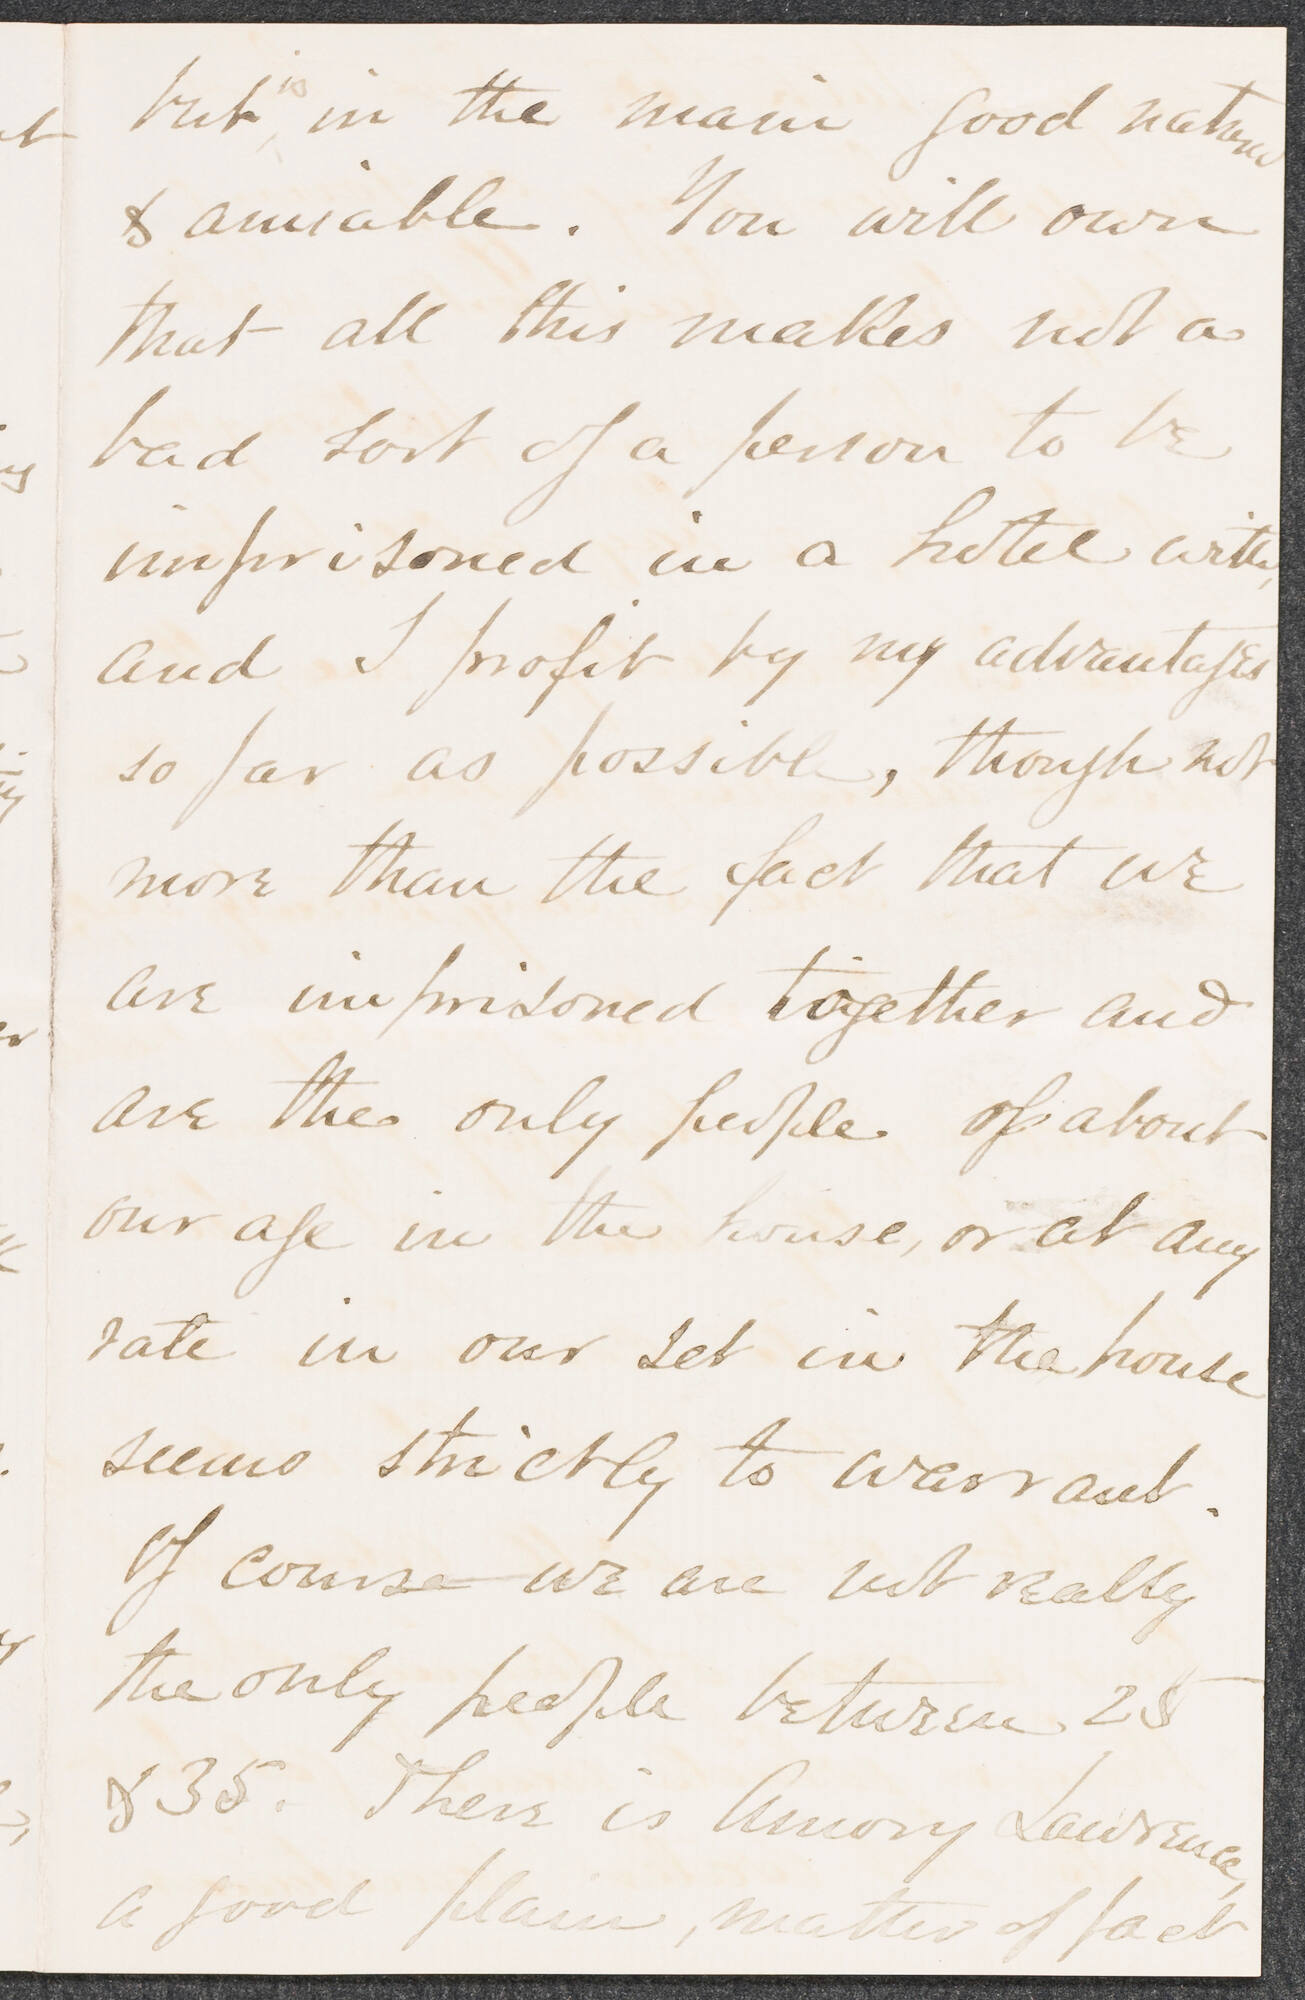 but is in the main good natured
& amiable. You will own
that all this makes not a
bad sort of a person to be
imprisoned in a hotel with,
and I profit by my advantages
so far as possible, though not
more than the fact that we
are imprisoned together and
are the only people of about
our age in the house, or at any
rate in our set in the house
seems strictly to warrant.
Of course we are not really
the only people between 25
& 35. There is Amory Lawrence,
a good plain, matter of fact